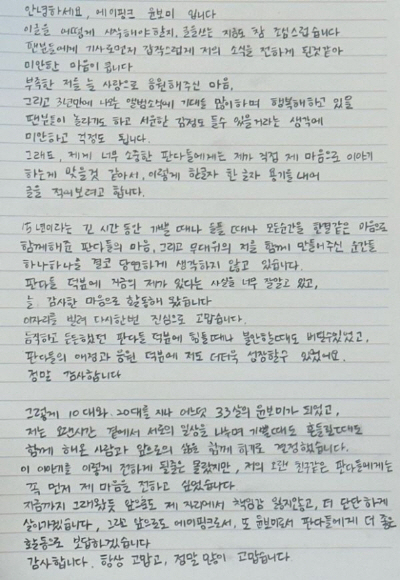 안녕하세요, 에이핑크 윤보미 입니다
이글을 어떻게 시작해야할지, 글을쓰는 지금도 참 조심스럽습니다
팬분들에게 기사로먼저 갑작스럽게 저의 소식을 전하게 된것같아
미안한 마음이 큽니다
부족한 저를 늘 사랑으로 응원해주신 마음,
그리고 오랜만에 나올 앨범소식에 기대도 많이하며 행복해하고 있을
팬분들이 놀라기도 하고 서운한 감정도 들수 있을거라는 생각에
미안하고 걱정도 됩니다.
그래도, 제게 너무 소중한 판다들에게는 제가 직접 제 마음으로 이야기
하는게 맞을것 같아서, 이렇게 한글자 한 글자 용기를 내어
글을 적어보려고 합니다.
15년이라는 긴 시간 동안 기쁠 때나 슬플 때나 모든순간을 한결같은 마음으로
함께해준 판다들의 마음, 그리고 무대위의 저를 함께 만들어주신 순간들
하나하나를 결코 당연하게 생각하지 않고 있습니다.
판다들 덕분에 지금의 제가 있다는 사실을 너무 잘알고 있고,
늘 감사한 마음으로 활동해 왔습니다
이자리를 빌려 다시한번 진심으로 고맙습니다.
묵직하고 든든했던 판다들 덕분에 힘들때나 불안할때도 버틸수있었고,
판다들의 애정과 응원 덕분에 저도 더더욱 성장할수 있었어요.
정말 감사합니다
그렇게 10대와 20대를 지나 어느덧 33살의 윤보미가 되었고,
저는 오랜시간 곁에서 서로의 일상을 나누며 기쁠때도 흔들릴때도
함께 해온 사람과 앞으로의 삶을 함께 하기로 결정했습니다.
이 이야기를 이렇게 전하게 될줄은 몰랐지만, 저의 오랜 친구같은 판다들에게는
꼭 먼저 제 마음을 전하고 싶었습니다
지금까지 그래왔듯 앞으로도 제 자리에서 책임감 잃지않고, 더 단단하게
살아가겠습니다, 그리고 앞으로도 에이핑크로서, 또 윤보미로서 판다들에게 더 좋은
활동으로 보답하겠습니다
감사합니다. 항상 고맙고, 정말 많이 고맙습니다